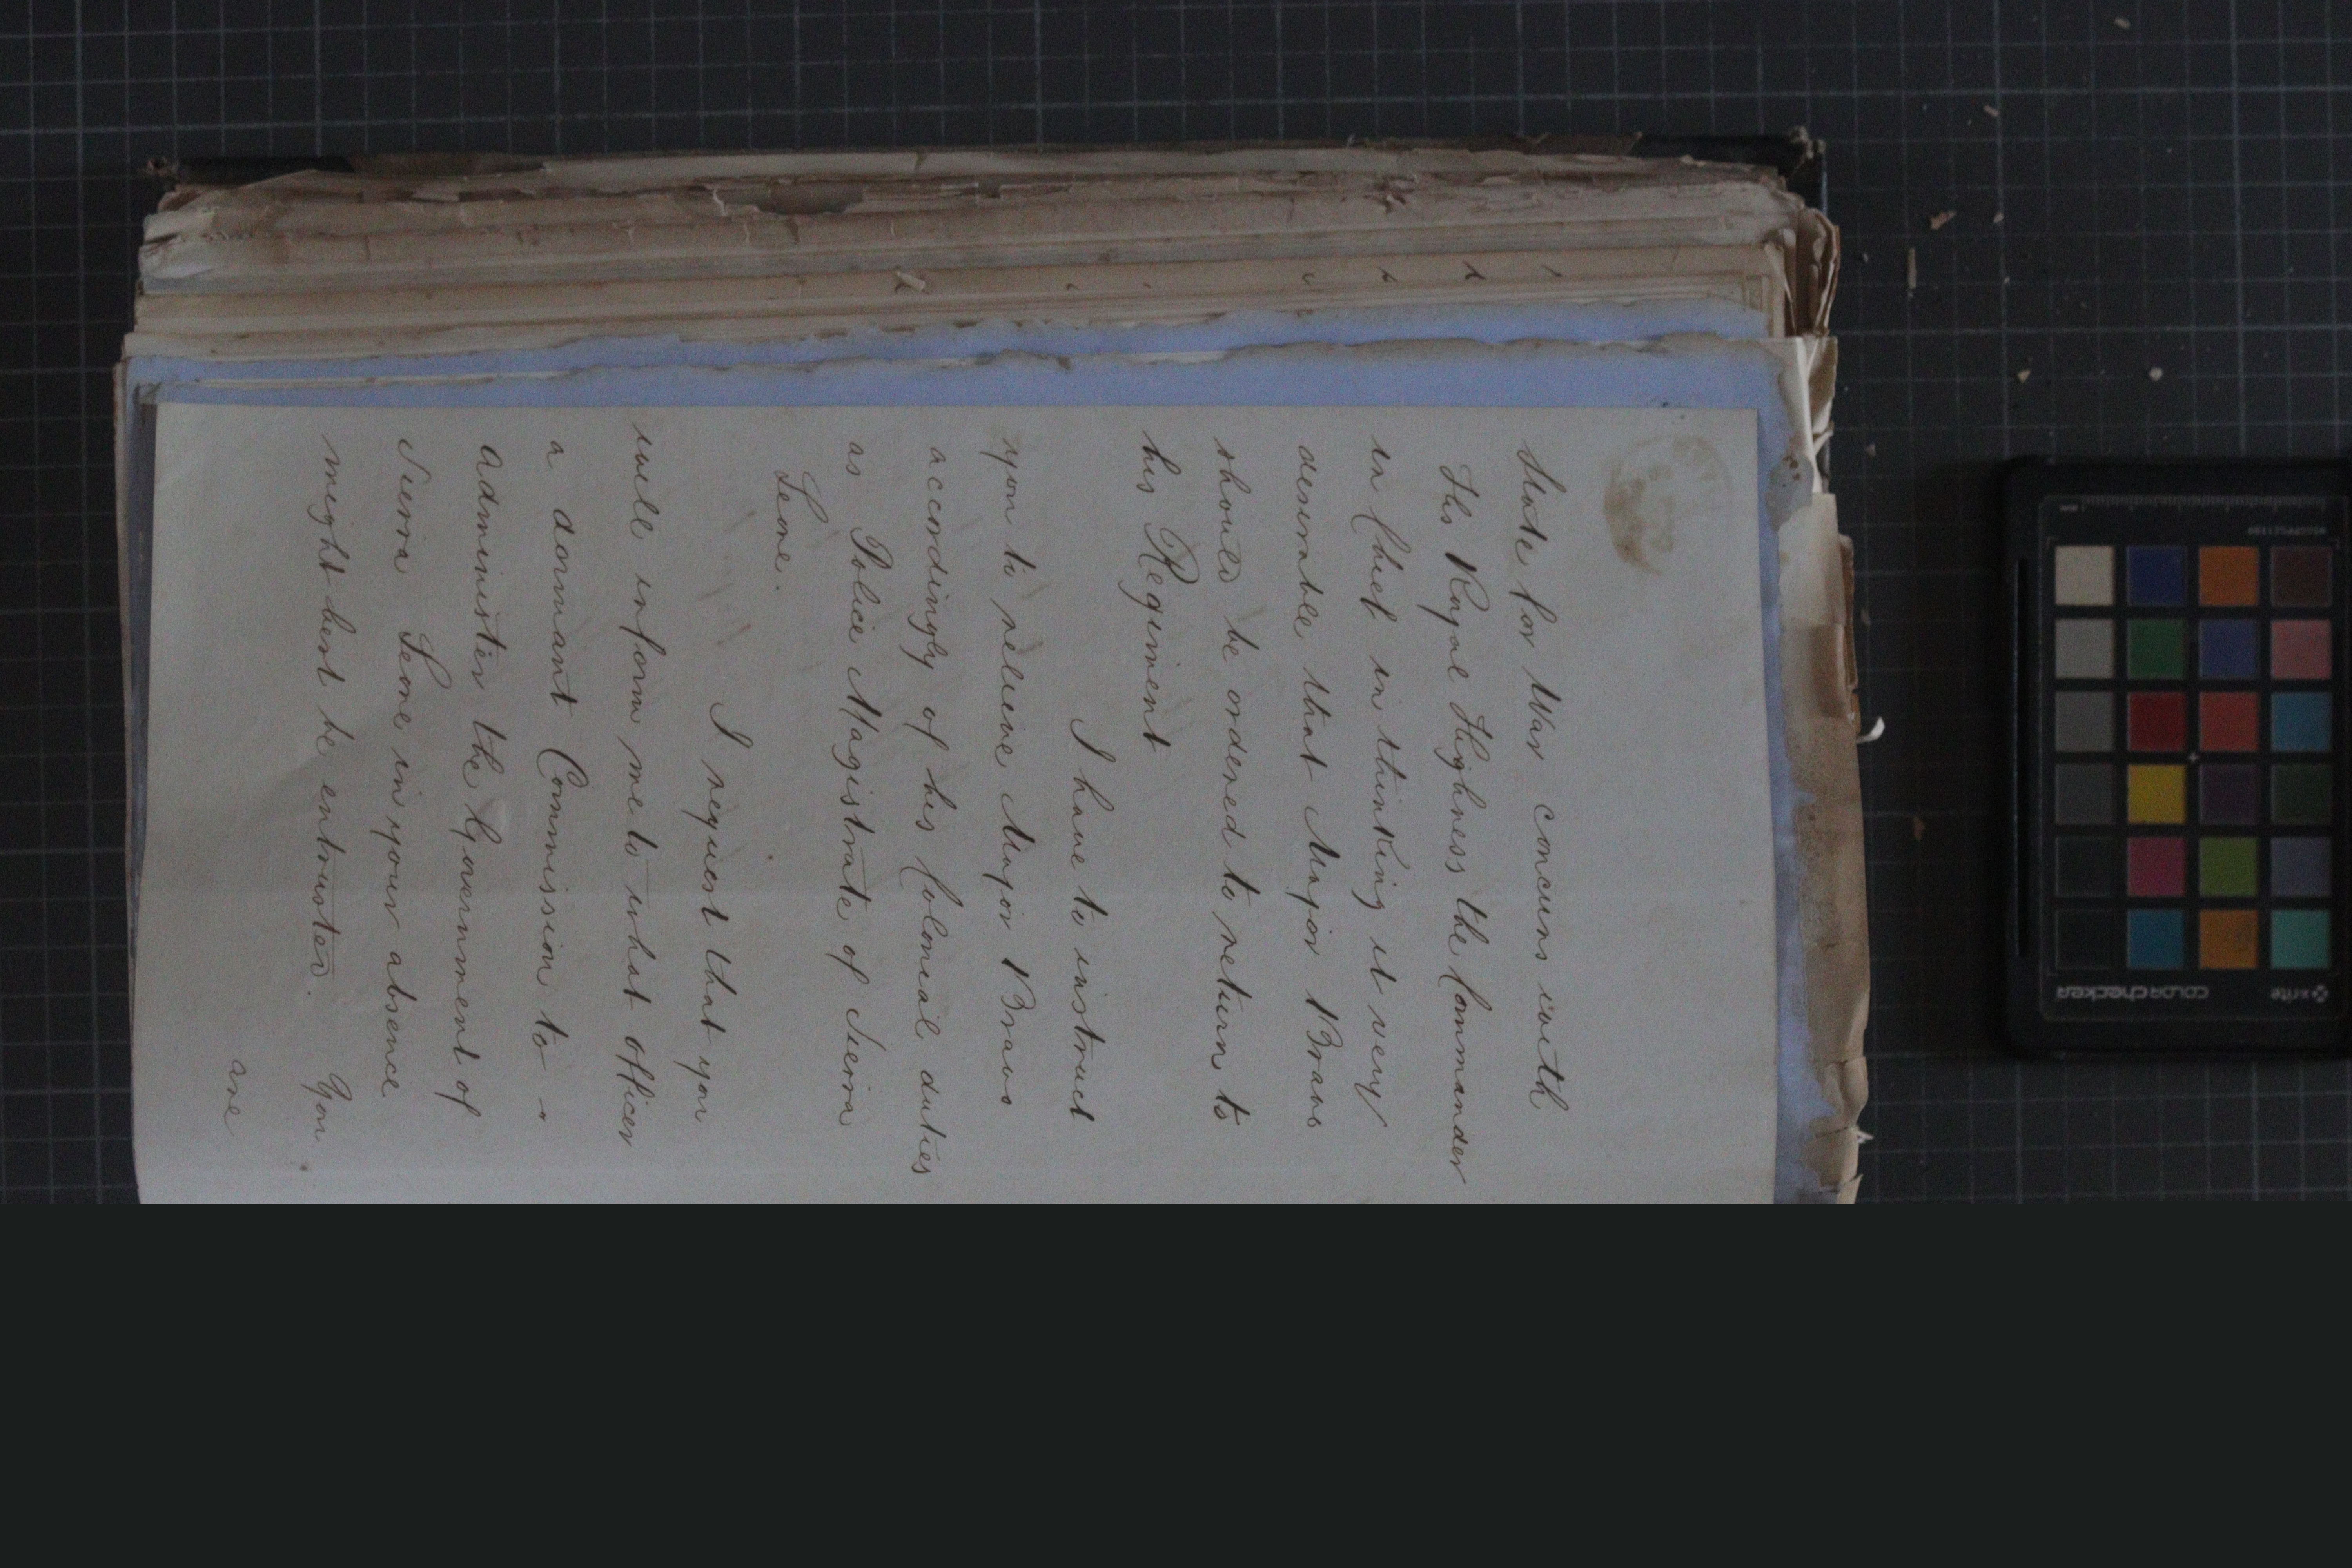 State for War concurs with
His Royal Highness the Commander
in Chief in thinking it very
desirable that Major Bravo
should be ordered to return to
his Regiment
I have to instruct
you to relieve Major Bravo
accordingly of his Colonial duties
as Police Magistrate of Sierra
Leone.
I request that you
will inform me to what officer
a dormant Commission to
administer the Government of
Sierra Leone in your absence
might best be entrusted. You
are
x-rite
colorchecker